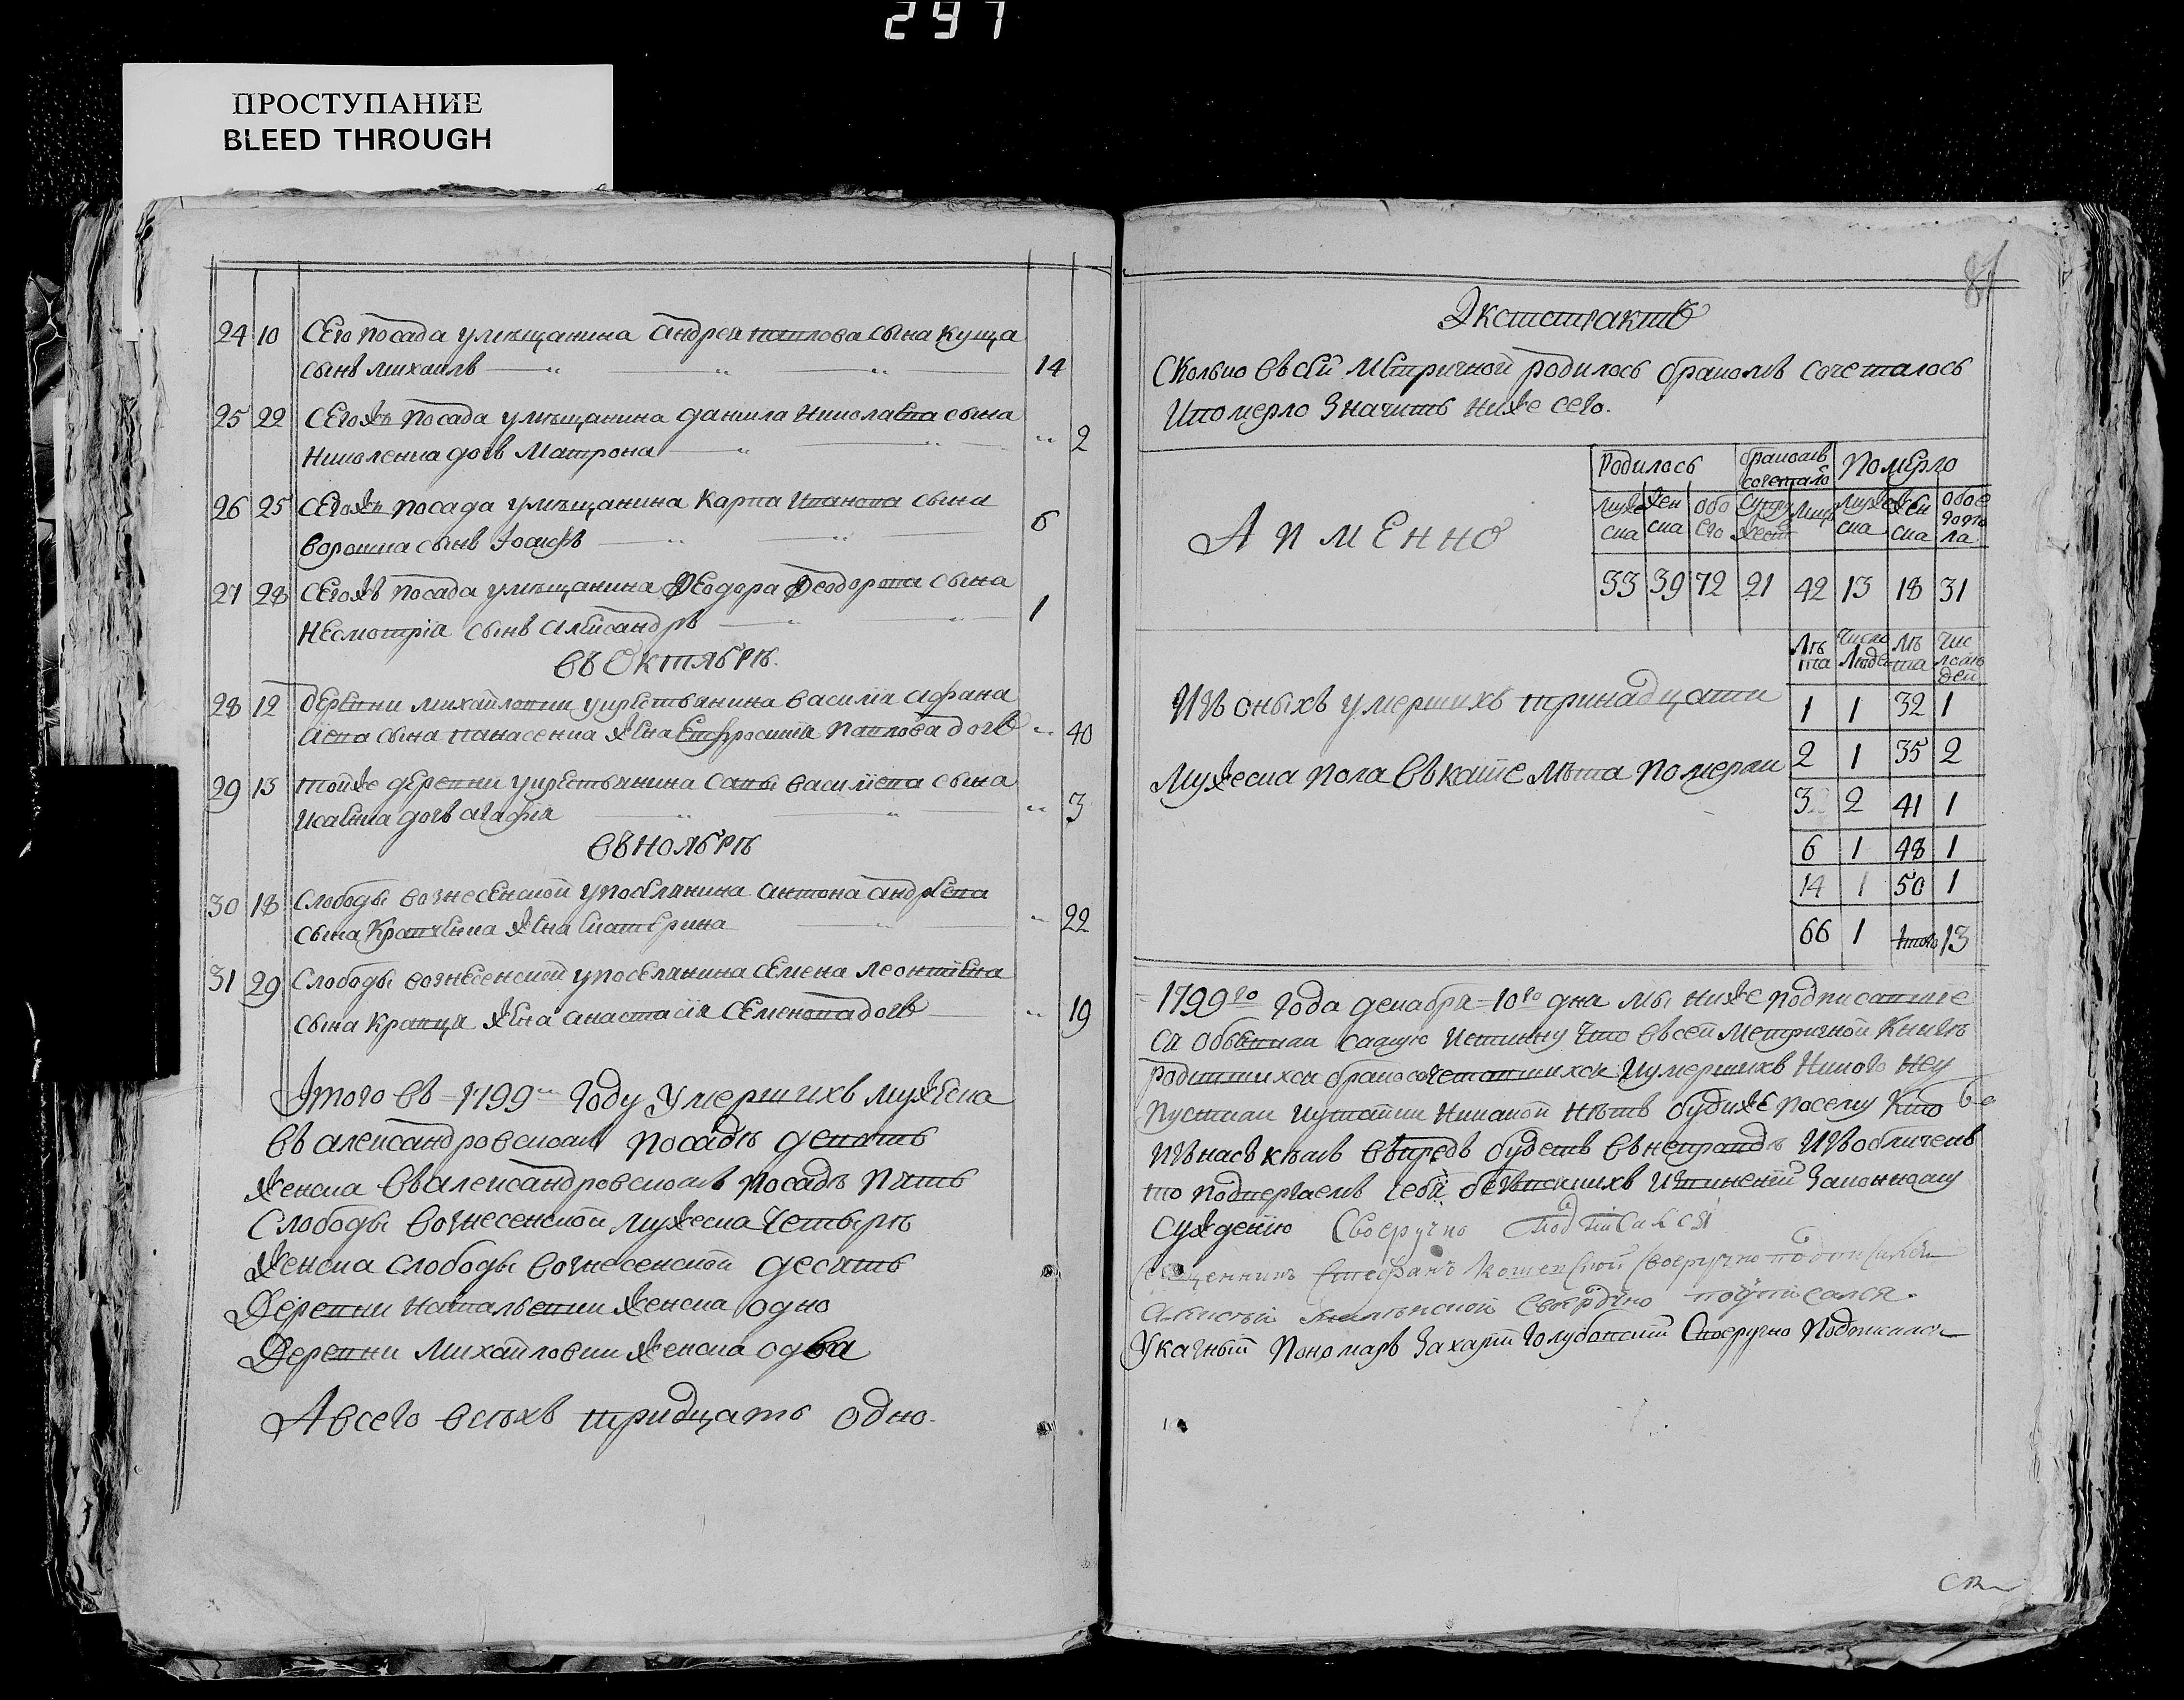 297
ПРОСТУПАНИЕ
BLEED THROUGH
24 10 Сего посада умѣщанина Андрея павлова сына Куща
сынъ михаилъ 14
25 22 Сегожъ посада умѣщанина данила Николаева сына
Николенка дочь Матрона 2
26 25 Сегожъ посада умѣщанина Карпа Иванова сына
ворошка сынъ Іоаннъ 6
27 28 Сегожъ посада умѣщанина Ѳеодора Ѳеодорова сына
Несмотрія сынъ алеѯандръ 1
въ Октябрѣ.
28 12 деревни михайловки укрестьянина василія афана
сіева сына панасенка жена Евфросинія павлова дочь 40
29 13 тойже деревни укрестьянина савы василіева сына
Исаенка дочь агафія 3
въ ноябрѣ
30 18 Слободы вознесенской упоселянина антона андреева
сына Кравченка жена екатерина 22
31 29 Слободы вознесенской упоселянина семена леонтіева
сына Кравца жена анастасія Семенова дочь 19
Итого въ 1799 году умершихъ мужеска
въ александровскомъ посадѣ девять
женска въ александровскомъ посадѣ пять
Слободы вознесенской мужеска четырѣ
женска слободы вознесенской десять
Деревни Натальевки женска одно
Деревни Михайловки женска два
А всего всѣхъ тридцать одно.
81
Экстстрактъ
Сколько въ сей метричной родилось бракомъ сочеталось
и померло значитъ ниже сего.
А именно
Родилось бракомъ сочетало Померло
муже ска жен ска обо его супру жест лиц муже ска жен ска обоего пола
33 39 72 21 42 13 18 31
Изъ оныхъ умершихъ тринадцати
мужеска пола въ какіе лѣта померли
лѣ та число людей лѣ та чис ло лю дей
1 1 32 1
2 1 35 2
3 2 41 1
6 1 48 1
14 1 50 1
66 1 Итого 13
1799го года декабря 10го дня мы ниже подписавшіе
ся объявили самую истинну что въ сей метричной Книгѣ
родившихся бракосочетавшихся и умершихъ никого неу
пустили и утайки никакой нѣтъ будиже посему кто
изъ насъ кѣмъ впредь будетъ въ неправдѣ изъобличенъ
то подвергаемъ себя безъ всякихъ законному
суждению Своеручно подписался
священникъ Стефанъ своеручно подписался
Алексѣй своеручно подписался.
Указный пономарь Захарій Голубовскій своеручно подписался